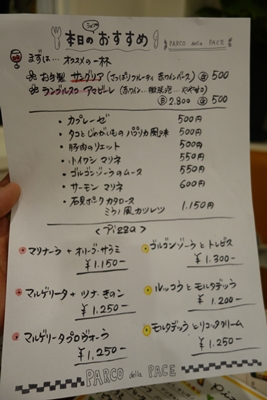 本日のおすすめ
PARCO della PACE
まずは… オススメの一杯
お自製 サングリア (さっぱりフルーティ 赤ワインベース) 500
ランブルスコ アマビーレ
2.800 500
・カプレーゼ 500円
・タコとじゃがいものパプリカ風味 500円
・豚肉のリエット 500円
・小イワシ マリネ 550円
・ゴルゴンゾーラのムース 550円
・サーモン マリネ 600円
・カタロース
ミラノ風カツレツ 1.150円
<Pizza>
マリナーラ + オリーブ・サラミ
¥1.150-
ゴルゴンゾーラと
¥1.300-
マルゲリータ + ツナ・きのこ
¥1.250-
ルッコラとモルタデッラ
¥1.200-
マルゲリータプロヴォーラ
¥1.250-
モルタデッラとリコッタクリーム
¥1.250-
PARCO della PACE